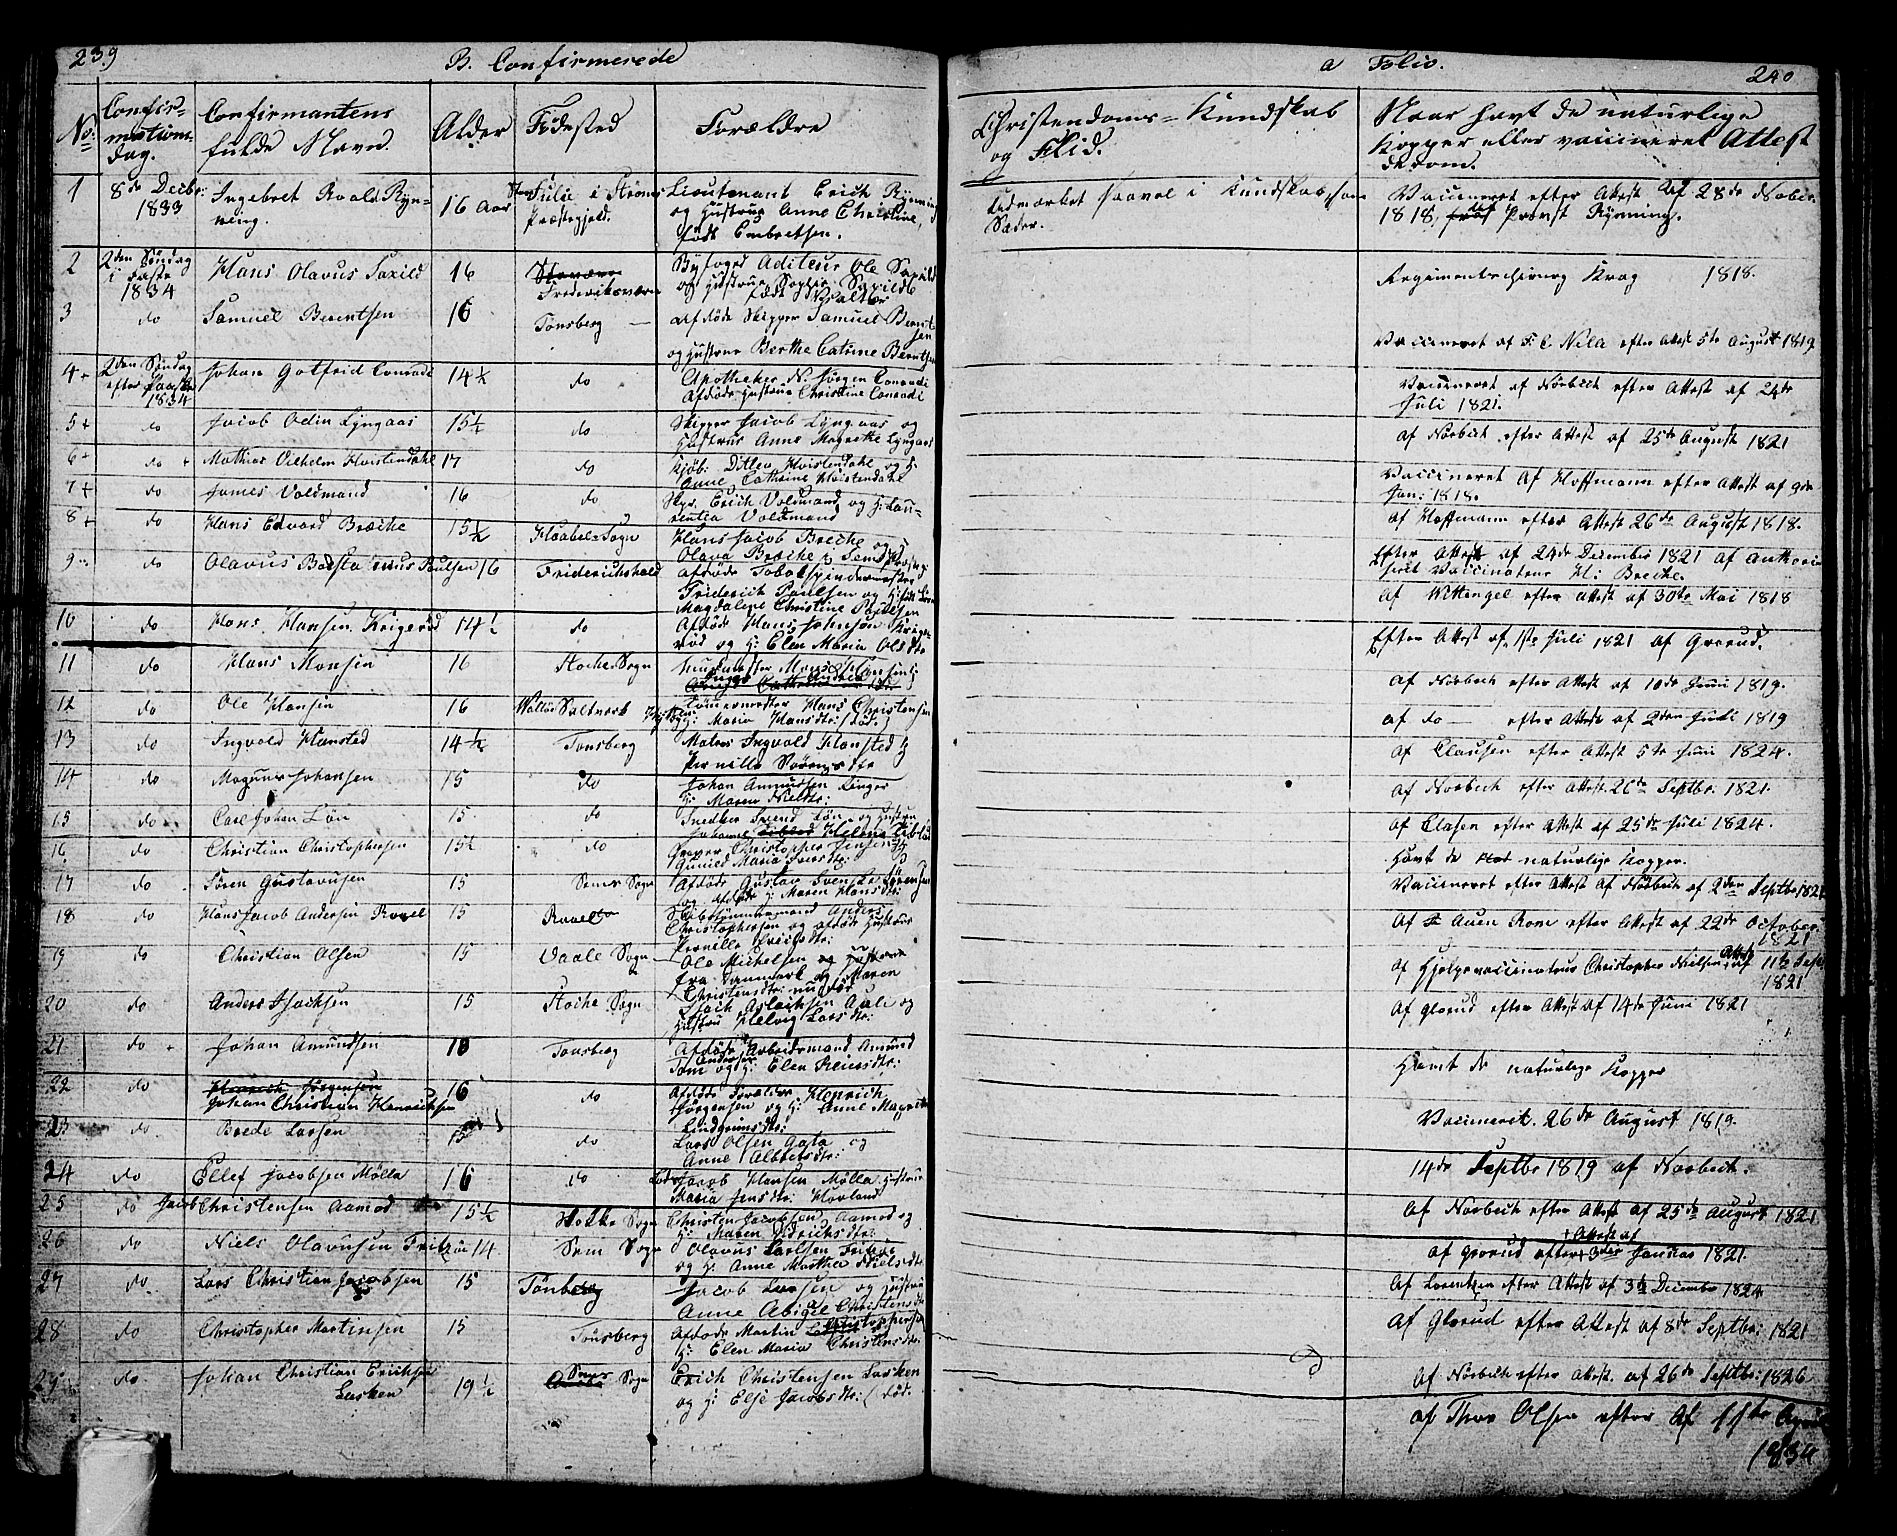 239
B. Confirmerede
a Folio.
240
No:
Confir-
mations-
dag.
Confirmantens
fulde Navn.
Alder
Fødested
Forældre
Christendoms-Kundskab
og Flid.
Naar havt de naturlige
Kopper eller vaccineret Attest
derom.
1
8de Decbr:
1833
Ingebret Roald Ryn-
ning.
16 Aar
i
Præstegjeld.
Lieutenant Erich Rynning
og Hustrue Anne Christine,
født Embretsen.
Udmærket saavel i Kundskab som
Sæder.
Vaccineret efter Attest af 28de Novbr.
1818, Provst Rynning.
2
2den Søndag
i Faste
1834
Hans Olavus Saxild
16
Frederiksværn
Byfoged Auditeur Ole Saxild
og Hustrue Sophie Saxild
født
Regimentschirurg Krag 1818.
3
do
Samuel Berentsen
16
Tønsberg
Afdøde Skipper Samuel Bernt-
sen
og Hustrue Berthe Catrine Berntsen
Vaccineret af F. C. Nila efter Attest 5te August 1819
4
2den Søndag
efter Paaske
1834
Johan Gotfrid Conradi
14½
do
Apotheker N. Jørgen Conradi
Afdøde Hustrue Christine Conradi
Vaccineret af Norbech efter Attest af 24de
Juli 1821.
5
do
Jacob Odin Lyngaas
15½
do
Skipper Jacob Lyngaas og
Hustrue Anne Magrethe Lyngaas
af Norbech efter Attest af 25de August 1821
6
do
Mathias Vilhelm Hvistendahl
17
do
Kjøb: Ditlev Hvistendahl og H:
Anne Cathrine Hvistendahl
Vaccineret af Hoffmann efter Attest af 9de
Jan: 1818.
7
do
James Voldmand
16
do
Skpr. Erich Voldmand og H: Lau-
rentia Voldmand
af Hoffmann efter Attest 26de August 1818.
8
do
Hans Edvard Breche
15½
Sogn
Hans Jacob Breche
og Olava Breche i Sem Præstegj
Efter Attest af 24de December 1821 af authori-
seret Vaccinateur H: Breche.
9
do
Olavus Paulsen
16
Friderichshald
Afdøde Tobakspindermester
Friderich Paulsen og H: født
Magdalene Christine Paulsen
af Wittengel efter Attest af 30te Mai 1818
10
do
Hans Hansen Krigerød
14½
do
Afdøde Hans Johnsen Kriger-
rød og H: Elen Maria Olsdtr
Efter Attest af 1ste Juli 1821 af Grorud.
11
do
Hans Monsen
16
Stocke Sogn
Mons Hansen
af Norbech efter Attest af 10de Juni 1819.
12
do
Ole Hansen
16
Walløe Saltverk
Tømermester Hans Christensen
H: Maria Hansdtr: Lød.
af do — efter Attest af 2den Juli 1819
13
do
Ingvald Hansted
14½
Tønsberg
Matros Ingvald Hansted H:
Pernille Sørensdtr
af Clausen efter Attest 5te Juni 1824.
14
do
Magnus Johansen
15
do
Johan Amundsen Ringer
H: Maren Nielsdtr:
af Norbech efter Attest 26de Septbr. 1821.
15
do
Carl Johan Løn
15
do
Snedker Svend Løn og Hustrue
Johanne Helene
af Clasen efter Attest af 25de Juli 1824.
16
do
Christian Christophersen
15½
do
Graver Christopher Jensen H:
Gunild Maria Iversdtr:
Havt de naturlige Kopper.
17
do
Søren Gustavusen
15
Sems Sogn
Afdøde Gustav Svenske Sørensen
og H: Maren Hansdtr:
Vaccineret efter Attest af Norbech af 2den Septbr 1821
18
do
Hans Jacob Andersen Roael
15
Anders
Christophersen og afdøde Hustrue
Pernille
af Auen Rom efter Attest af 22de October
1821
19
do
Christian Olsen
15
Vaale Sogn
Ole Michelsen
fra Danmark og Maren
Christensdtr:
af Hjelpevaccinateur Christopher Nielsen Attest af 11te Sept
1821
20
do
Anders Isachsen
15
Stocke Sogn
Isach Aslachsen Auli og
Hustru Helvig Larsdtr:
af Grorud efter Attest af 14de Juni 1821
21
do
Johan Amundsen
16
Tønsberg
Afdøde Arbeidsmand Amund
Andersen
Tom og H: Elen Reiersdtr:
Havt de naturlige Kopper
22
do
Johan Christian Henrichsen
16
do
Afdøde Forældre Henrich
Jørgensen og H: Anne Magrethe
Lindgreensdtr:
Vaccineret. 26de August 1819.
23
do
Brede Larsen
15
do
Lars Olsen Gata og
Anne Albretsdtr:
14de Septbr 1819 af Norbech.
24
do
Ellef Jacobsen Mølla
16
do
Lods Jacob Hansen Mølla Hustrue
Maria Jensdtr: Hovland
af Norbech efter Attest af 25de August 1821
25
do
Jacob Christensen Aamod
15½
Stokke Sogn
Christen Jacobsen Aamod og
H: Maren Didrichsdtr:
af Grorud efter Attest af 3die Januar 1821.
26
do
Niels Olavusen Fritzøe
14
Sem Sogn
Olavus Carlsen Fritzøe
og H: Anne Marthea Nielsdtr
af Lorentzen efter Attest af 3te December 1824
27
do
Lars Christian Jacobsen
15
Tønberg
Jacob Larsen og Hustrue
Anne Abigel Christensdtr
af Grorud efter Attest af 8de Septbr: 1821
28
do
Christopher Martinsen
15
Tønsberg
Afdøde Martin Christophersen
H: Elen Maria Christensdtr:
af Norbech efter Attest. af 26de Septbr: 1826
29
do
Johan Christian Erichsen
Lasken
19½
Sems Sogn
Erich Christensen Lasken
og H: Else Jacobsdtr: Lød.
af Thor Olsen efter Af 11te April
1834